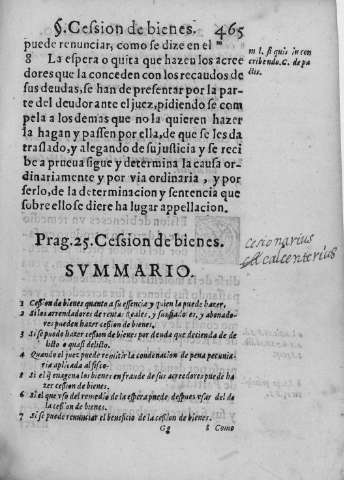 §. Cession de bienes. 465
puede renunciar, como se dize en el m
8 La espera o quita que hazen los acree
dores que la conceden con los recaudos de
sus deudas, se han de presentar por la par-
te del deudor ante el juez, pidiendo se com
pela a los demas que no la quieren hazer
la hagan y passen por ella, de que se les da
traslado, y alegando de su justicia y se reci
be a prueua sigue y determina la causa or-
dinariamente y por via ordinaria, y por
serlo, de la determinacion y sentencia que
sobre ello se diere ha lugar appellacion.
m l. si quis in con
cribendo. C. de pa
ctis.
Prag. 25. Cession de bienes.
Cesionarius
calcenterius
SVMMARIO.
1 Cession de bienes quanto a su essencia y quien la puede hazer.
2 Si los arrendadores de rentas Reales, y sus fiadores, y abonado-
res pueden hazer cession de bienes.
3 Si se puede hazer cession de bienes por deuda que decienda de de-
lito o quasi delito.
4 Quando el juez puede remitir la condenacion de pena pecunia-
ria aplicada al fisco.
5 Si el q̃ enagena los bienes en fraude de sus acreedores puede ha
zer cession de bienes.
6 Si el que vso del remedio de la espera puede despues vsar del de
la cession de bienes.
7 Si se puede renunciar el beneficio de la cession de bienes.
Gg 8 Como